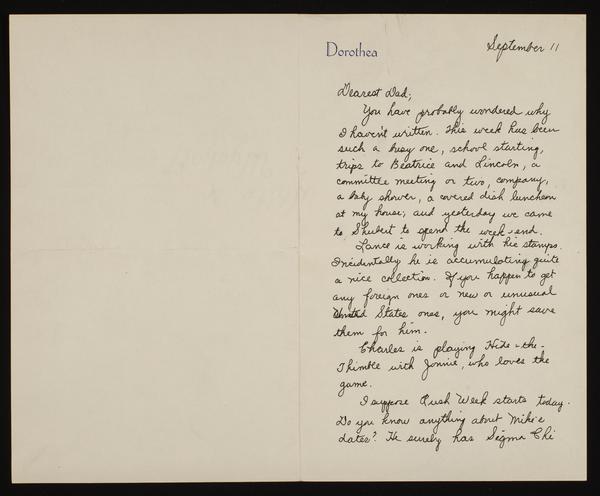 Dorothea
September 11
Dearest Dad;
You have probably wondered why
I haven't written. This week has been
such a busy one, school starting,
trips to Beatrice and Lincoln, a
committee meeting or two, company,
a baby shower, a covered dish luncheon
at my house; and yesterday we came
to Shubert to spend the week-end.
Lance is working with his stamps.
Incidentally he is accumulating quite
a nice collection. If you happen to get
any foreign ones or new or unusual
United States ones, you might save
them for him.
Charles is playing Hide-the-
Thimble with Jonnie, who loves the
game.
I suppose Rush Week starts today.
Do you know anything about Mike's
dates? He surely has Sigma Chi